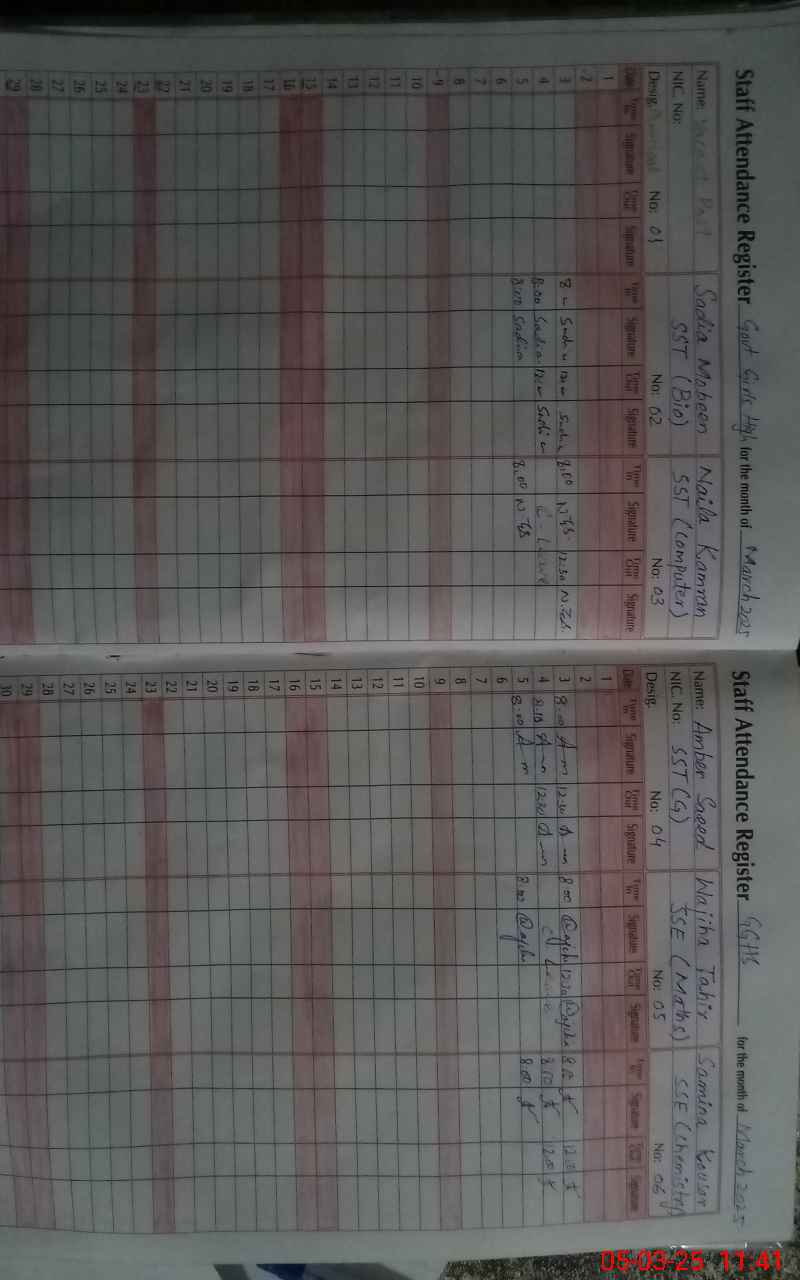 Staff Attendance Register Govt Girls High for the month of March 2025
Name: Vacant Post Sadia Mobeen Naila Kamran
NIC. No: SST (Bio) SST (Computer)
Desig. Principal No: 01 No: 02 No: 03
Date Time In Signature Time Out Signature Time In Signature Time Out Signature Time In Signature Time Out Signature
1
2
3 8.00
4 8:00 Sadia C-Leave
5 8:00 Sadia 8.00
6
7
8
9
10
11
12
13
14
15
16
17
18
19
20
21
22
23
24
25
26
27
28
29
Staff Attendance Register GGHS for the month of March 2025
Name: Amber Saeed Wajiha Tahir Samina Kousar
NIC. No: SST (G) SSE (Maths) SSE (Chemistry)
Desig. No: 04 No: 05 No: 06
Date Time In Signature Time Out Signature Time In Signature Time Out Signature Time In Signature Time Out Signature
1
2
3 8:00 12:30 8:00 12:30
4 8:10 12:30 C. Leave 8:10
5 8:00 8:00 8:00
6
7
8
9
10
11
12
13
14
15
16
17
18
19
20
21
22
23
24
25
26
27
28
29
30
05-03-25 11:41